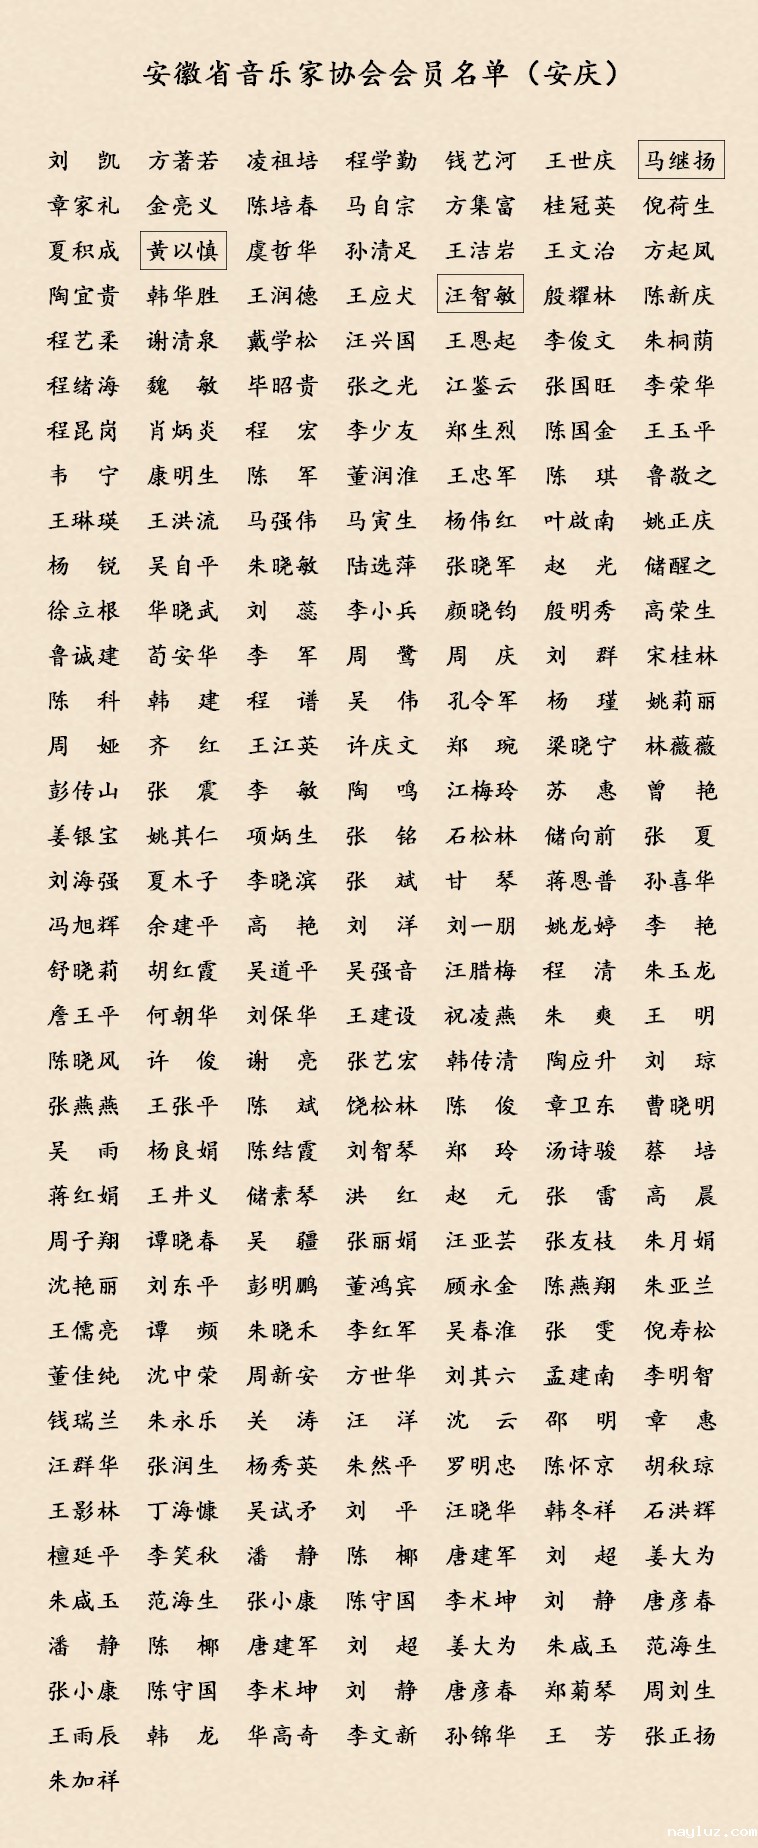 安徽省音乐家协会会员名单（安庆）
刘 凯 方著若 凌祖培 程学勤 钱艺河 王世庆 马继扬
章家礼 金亮义 陈培春 马自宗 方集富 桂冠英 倪荷生
夏积成 黄以慎 虞哲华 孙清足 王洁岩 王文治 方起凤
陶宜贵 韩华胜 王润德 王应犬 汪智敏 殷耀林 陈新庆
程艺柔 谢清泉 戴学松 汪兴国 王恩起 李俊文 朱桐荫
程绪海 魏 敏 毕昭贵 张之光 江鉴云 张国旺 李荣华
程昆岗 肖炳炎 程 宏 李少友 郑生烈 陈国金 王玉平
韦 宁 康明生 陈 军 董润淮 王忠军 陈 琪 鲁敬之
王琳瑛 王洪流 马强伟 马寅生 杨伟红 叶啟南 姚正庆
杨 锐 吴自平 朱晓敏 陆选萍 张晓军 赵 光 储醒之
徐立根 华晓武 刘 蕊 李小兵 颜晓钧 殷明秀 高荣生
鲁诚建 荀安华 李 军 周 鹭 周 庆 刘 群 宋桂林
陈 科 韩 建 程 谱 吴 伟 孔令军 杨 瑾 姚莉丽
周 娅 齐 红 王江英 许庆文 郑 琬 梁晓宁 林薇薇
彭传山 张 震 李 敏 陶 鸣 江梅玲 苏 惠 曾 艳
姜银宝 姚其仁 项炳生 张 铭 石松林 储向前 张 夏
刘海强 夏木子 李晓滨 张 斌 甘 琴 蒋恩普 孙喜华
冯旭辉 余建平 高 艳 刘 洋 刘一朋 姚龙婷 李 艳
舒晓莉 胡红霞 吴道平 吴强音 汪腊梅 程 清 朱玉龙
詹王平 何朝华 刘保华 王建设 祝凌燕 朱 爽 王 明
陈晓风 许 俊 谢 亮 张艺宏 韩传清 陶应升 刘 琼
张燕燕 王张平 陈 斌 饶松林 陈 俊 章卫东 曹晓明
吴 雨 杨良娟 陈结霞 刘智琴 郑 玲 汤诗骏 蔡 培
蒋红娟 王井义 储素琴 洪 红 赵 元 张 雷 高 晨
周子翔 谭晓春 吴 疆 张丽娟 汪亚芸 张友枝 朱月娟
沈艳丽 刘东平 彭明鹏 董鸿宾 顾永金 陈燕翔 朱亚兰
王儒亮 谭 频 朱晓禾 李红军 吴春淮 张 雯 倪寿松
董佳纯 沈中荣 周新安 方世华 刘其六 孟建南 李明智
钱瑞兰 朱永乐 关 涛 汪 洋 沈 云 邵 明 章 惠
汪群华 张润生 杨秀英 朱然平 罗明忠 陈怀京 胡秋琼
王影林 丁海慷 吴试矛 刘 平 汪晓华 韩冬祥 石洪辉
檀延平 李笑秋 潘 静 陈 椰 唐建军 刘 超 姜大为
朱戚玉 范海生 张小康 陈守国 李术坤 刘 静 唐彦春
潘 静 陈 椰 唐建军 刘 超 姜大为 朱戚玉 范海生
张小康 陈守国 李术坤 刘 静 唐彦春 郑菊琴 周刘生
王雨辰 韩 龙 华高奇 李文新 孙锦华 王 芳 张正扬
朱加祥
nayluz.com